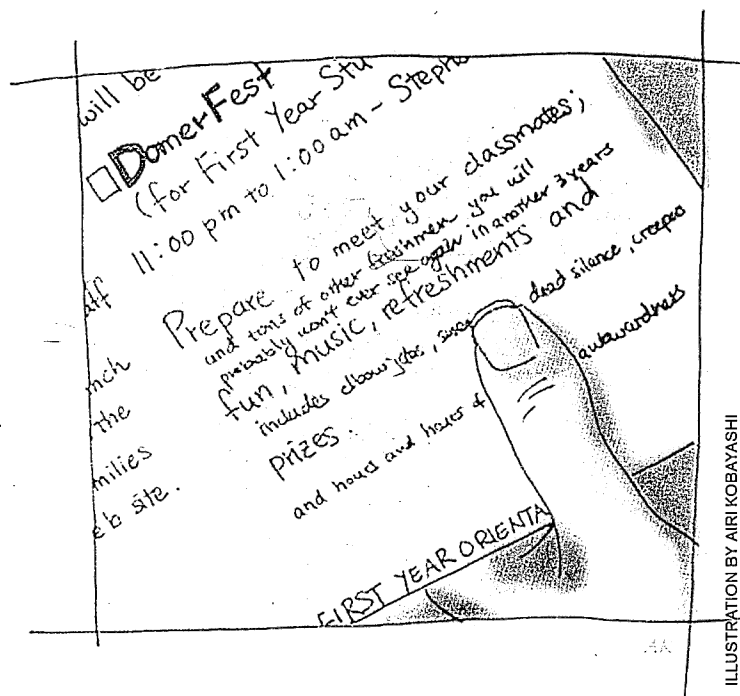 will be
DomerFest
(for First Year Stu
11:00 pm to 1:00 am - Steph
aff
Prepare to meet your classmates;
and tons of other freshmen you will
probably won't ever see again in another 3 years
fun, music, refreshments and
includes elbow jabs, dead silence, creepers
prizes.
and hours and hours of awkwardness
nch
the
milies
eb site.
FIRST YEAR ORIENTA
AK
ILLUSTRATION BY AIRI KOBAYASHI